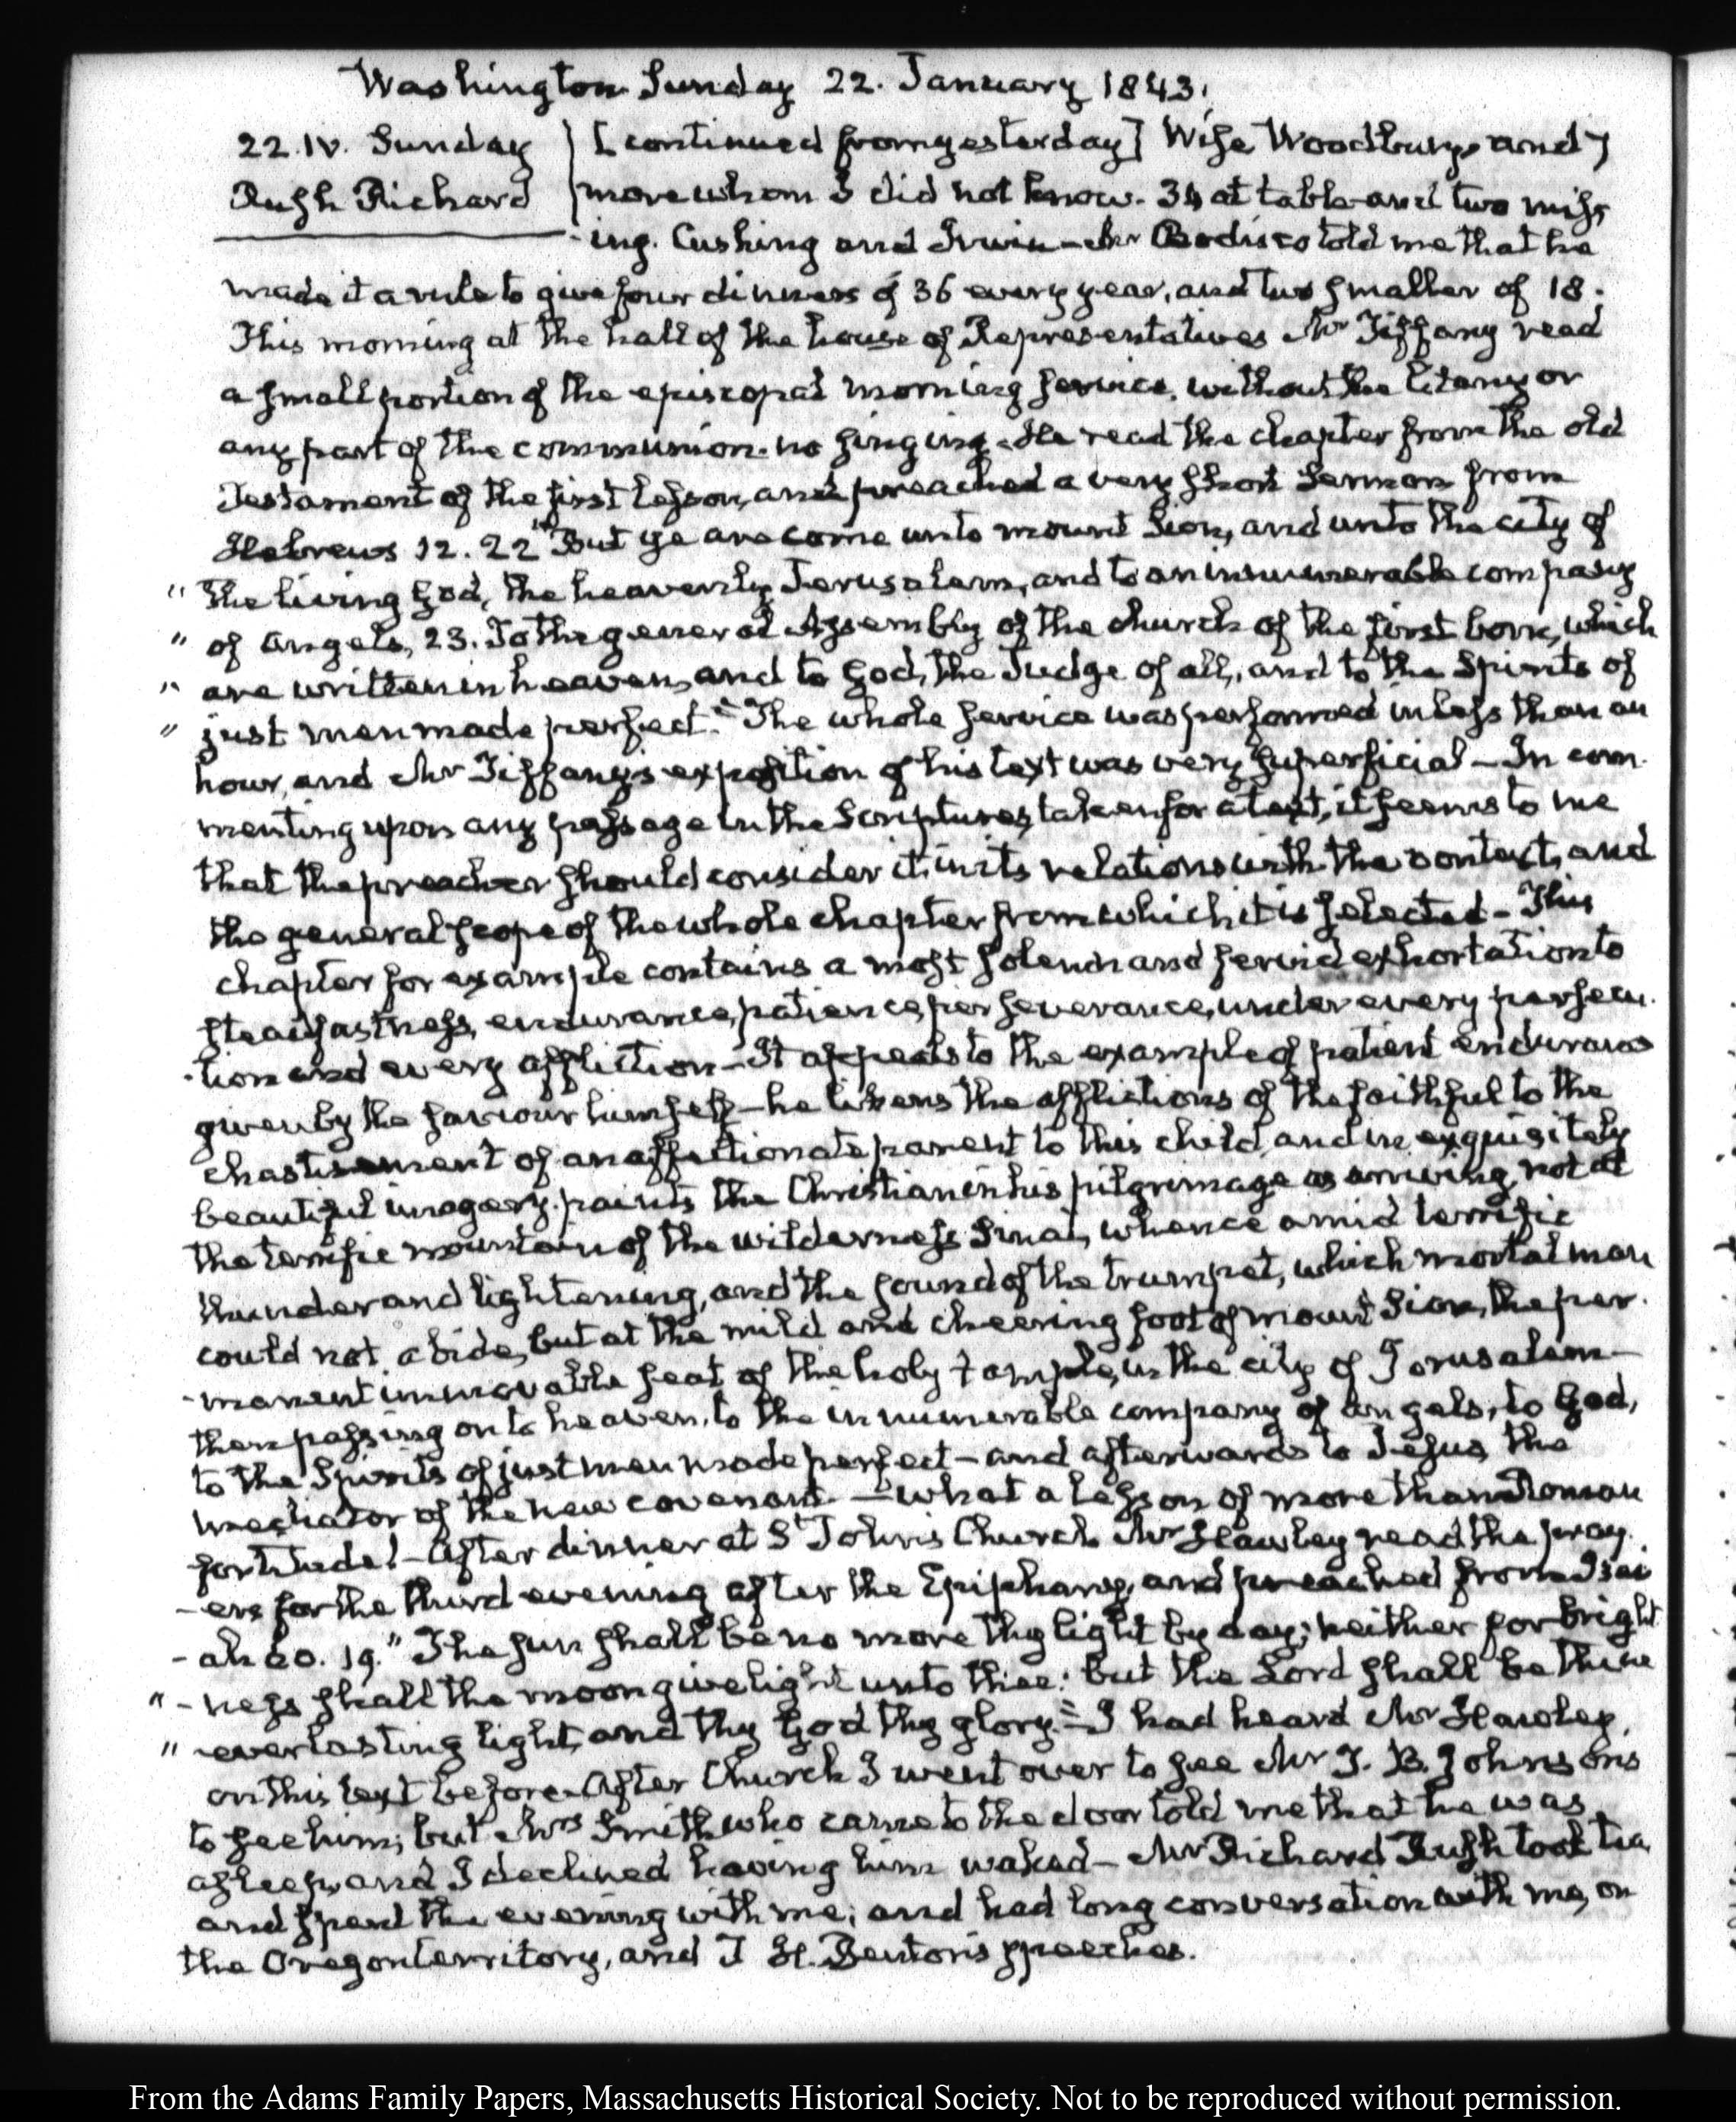 Washington Sunday 22. January 1843.
22. IV. Sunday
Rush Richard
[continued from yesterday] Wife Woodbury, and 7
more whom I did not know. 34 at table and two miss-
-ing. Cushing and Irwin — Mr Bodisco told me that he
made it a rule to give four dinners of 36 every year, and two smaller of 18.
This morning at the hall of the house of Representatives Mr Tiffany read
a small portion of the episcopal morning service, without the litany or
any part of the communion. no singing. He read the chapter from the old
Testament of the first lesson, and preached a very short Sermon from
Hebrews 12. 22 "But ye are come unto mount Sion, and unto the city of
" the living God, the heavenly Jerusalem, and to an innumerable company
" of angels, 23. To the general Assembly of the church of the first born, which
" are written in heaven, and to God, the Judge of all, and to the Spirits of
" just men made perfect." The whole service was performed in less than an
hour, and Mr Tiffany's exposition of his text was very superficial — In com-
menting upon any passage in the Scriptures, taken for a text, it seems to me
that the preacher should consider it in its relations with the context, and
the general scope of the whole chapter from which it is selected — This
chapter for example contains a most solemn and fervid exhortation to
steadfastness, endurance, patience, perseverance, under every persecu-
-tion and every affliction — It appeals to the example of patient endurance
given by the saviour himself — he likens the afflictions of the faithful to the
chastisement of an affectionate parent to his child, and in exquisitely
beautiful imagery, paints the Christian in his pilgrimage as arriving, not at
the terrific mountain of the wilderness Sinai, whence amid terrific
thunder and lightening, and the sound of the trumpet, which mortal man
could not abide, but at the mild and cheering foot of mount Sion, the per-
-manent immovable seat of the holy temple, in the city of Jerusalem —
then passing on to heaven, to the innumerable company of angels, to God,
to the Spirits of just men made perfect — and afterwards to Jesus the
mediator of the new covenant — what a lesson of more than Roman
fortitude! — After dinner at St John's Church Mr Hawley read the pray-
-ers for the third evening after the Epiphany, and preached from Isai-
-ah 60. 19. "The sun shall be no more thy light by day; neither for bright-
" -ness shall the moon give light unto thee: but the Lord shall be thine
" everlasting light, and thy God thy glory." — I had heard Mr Hawley,
on this text before. After Church I went over to see Mr J. B. Johnson's
to see him; but Mrs Smith who came to the door told me that he was
asleep, and I declined having him waked — Mr Richard Rush took tea
and spent the evening with me; and had long conversation with me, on
the Oregon territory, and T H. Benton's speeches.
From the Adams Family Papers, Massachusetts Historical Society. Not to be reproduced without permission.